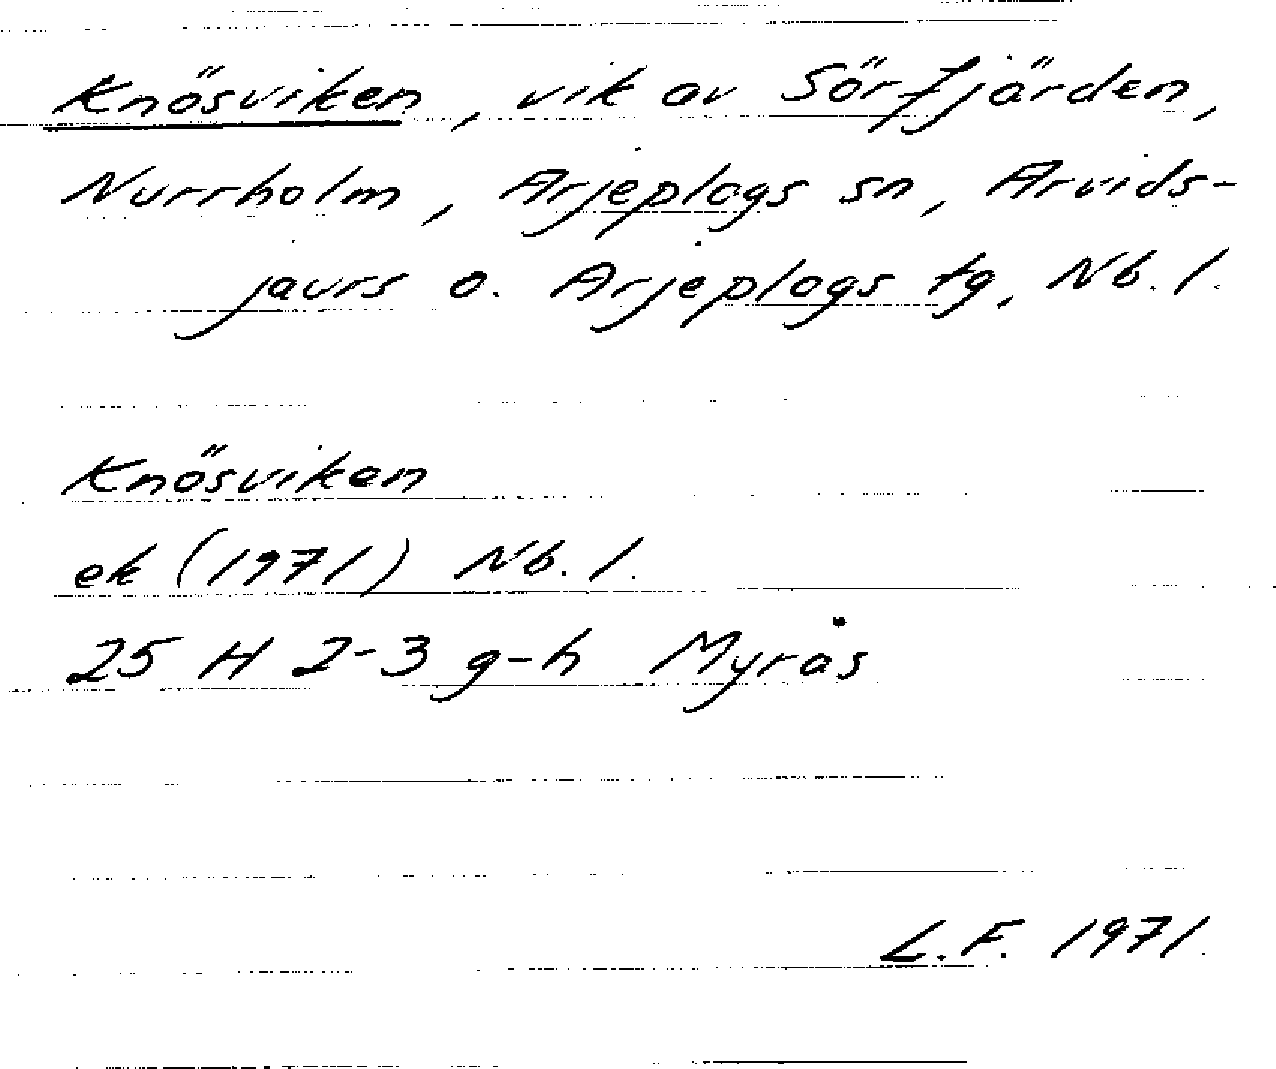 Knösviken, vik av Sörfjärden,
Nurrholm, Arjeplogs sn, Arvids-
jaurs o. Arjeplogs tg, Nb. l.
Knösviken
ek (1971) Nb. l.
25 H 2-3 g-h Myrås
L.F. 1971.